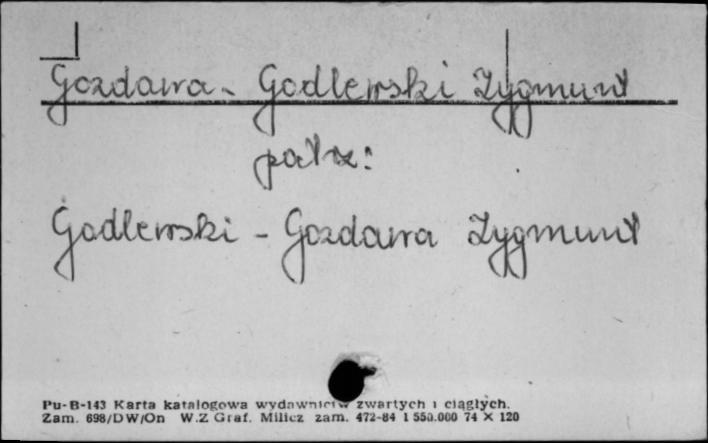 Gozdawa - Godlewski Zygmunt
patrz:
Godlewski - Gozdawa Zygmunt
Pu-B-143 Karta katalogowa wydawnictw zwartych i ciągłych.
Zam. 698/DW/On W.Z Graf. Milicz zam. 472-84 1 550.000 74 × 120